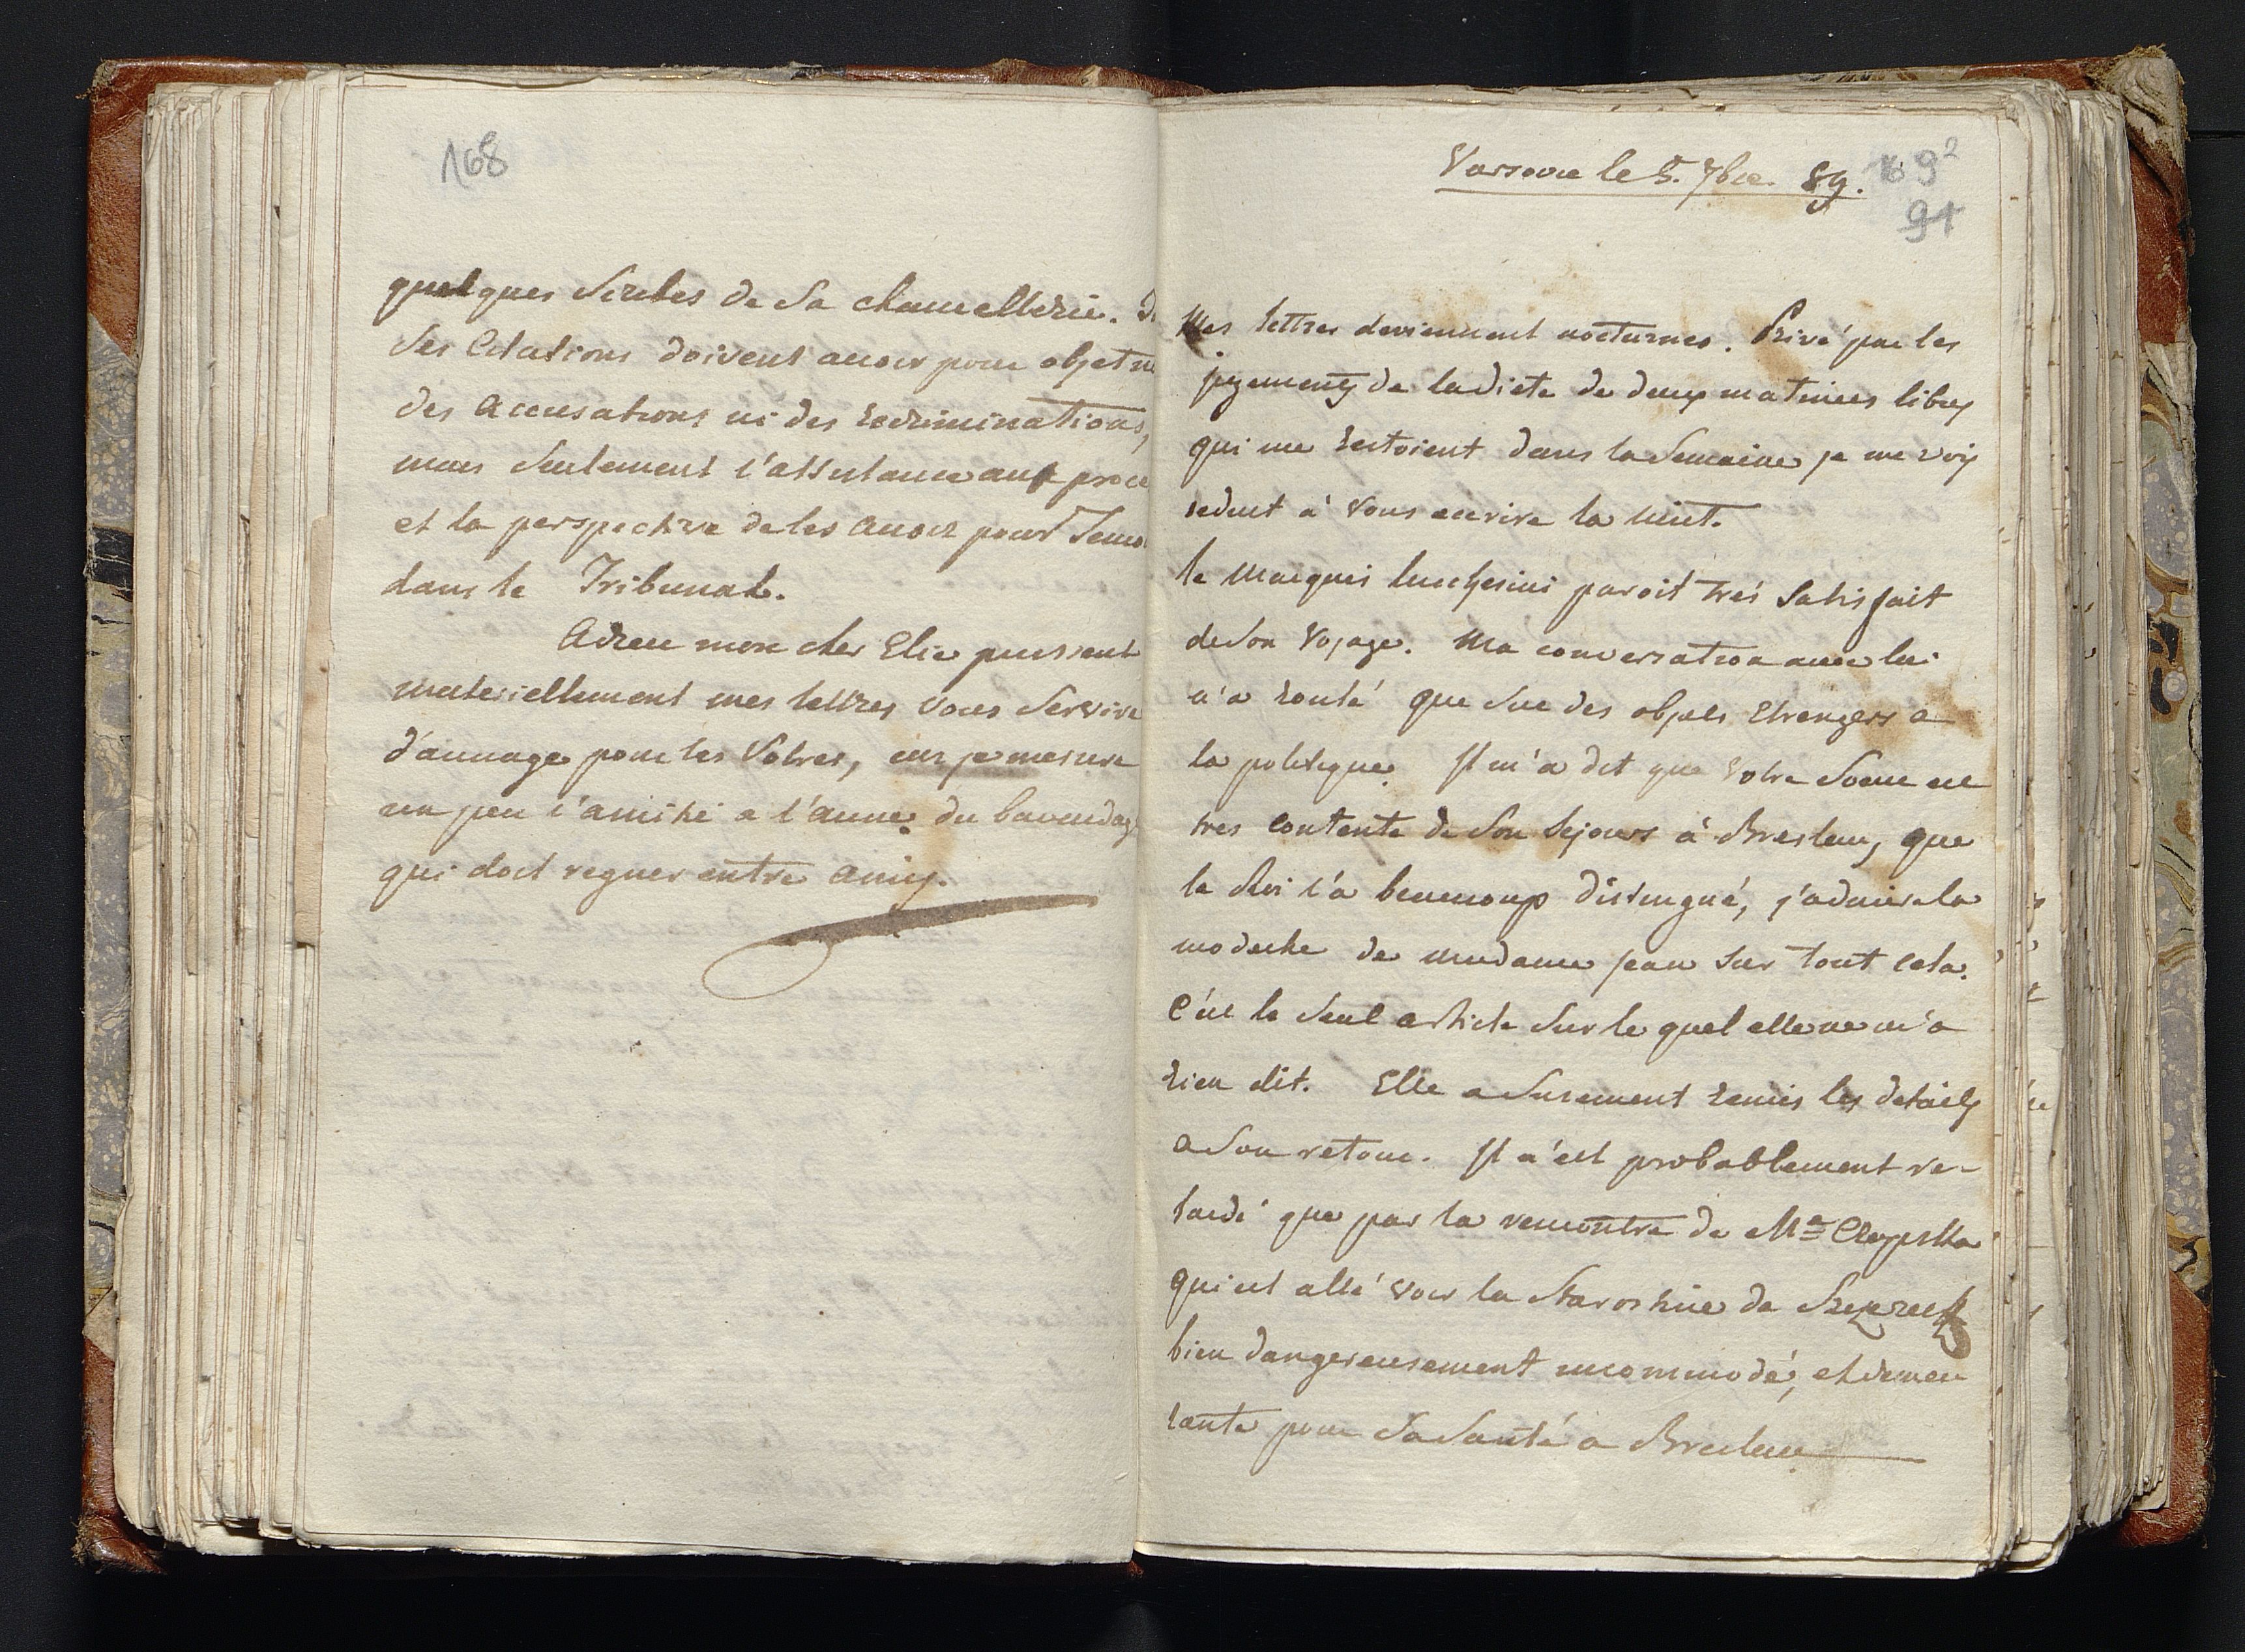 168
quelques Scribes de Sa chancellerie.
Ses Citations doivent avoir pour objet
des Accusations ni des recriminations,
mais Seulement l'assistance aux
et la perspective de les avoir pour
dans le Tribunal.
Adieu mon cher Elie puissent
materiellement mes lettres vous Servir
d'aunage pour les Votres, car je mesure
un peu l'amitié a l'aune du bavardage
qui doit regner entre amis.
Varsovie le 5. 7bre. 89.
169²
91
Mes lettres deviennent nocturnes. Privé par les
jugements de la diete de deux matinées libres
qui me restoient dans la Semaine je me vois
reduit à Vous ecrire la nuit.
le Marquis Lucchesini paroit trés Satisfait
de Son Voyage. Ma conversation avec lui
n'a roulé que Sur des objets etrangers a
la politique. Il m'a dit que votre Soeur est
tres contente de Son Sejours à Breslau, que
le Roi l'a beaucoup distingué, j'admire la
modestie de Madame jean Sur tout cela.
C'est le Seul article Sur le quel elle ne m'a
rien dit. Elle a Surement remis les details
a Son retour. Il n'est probablement re-
tardé que par la rencontre de Me
qui est allé voir la Starostine de
bien dangereusement incommodé, et demeu
rante pour Sa Santé a Breslau